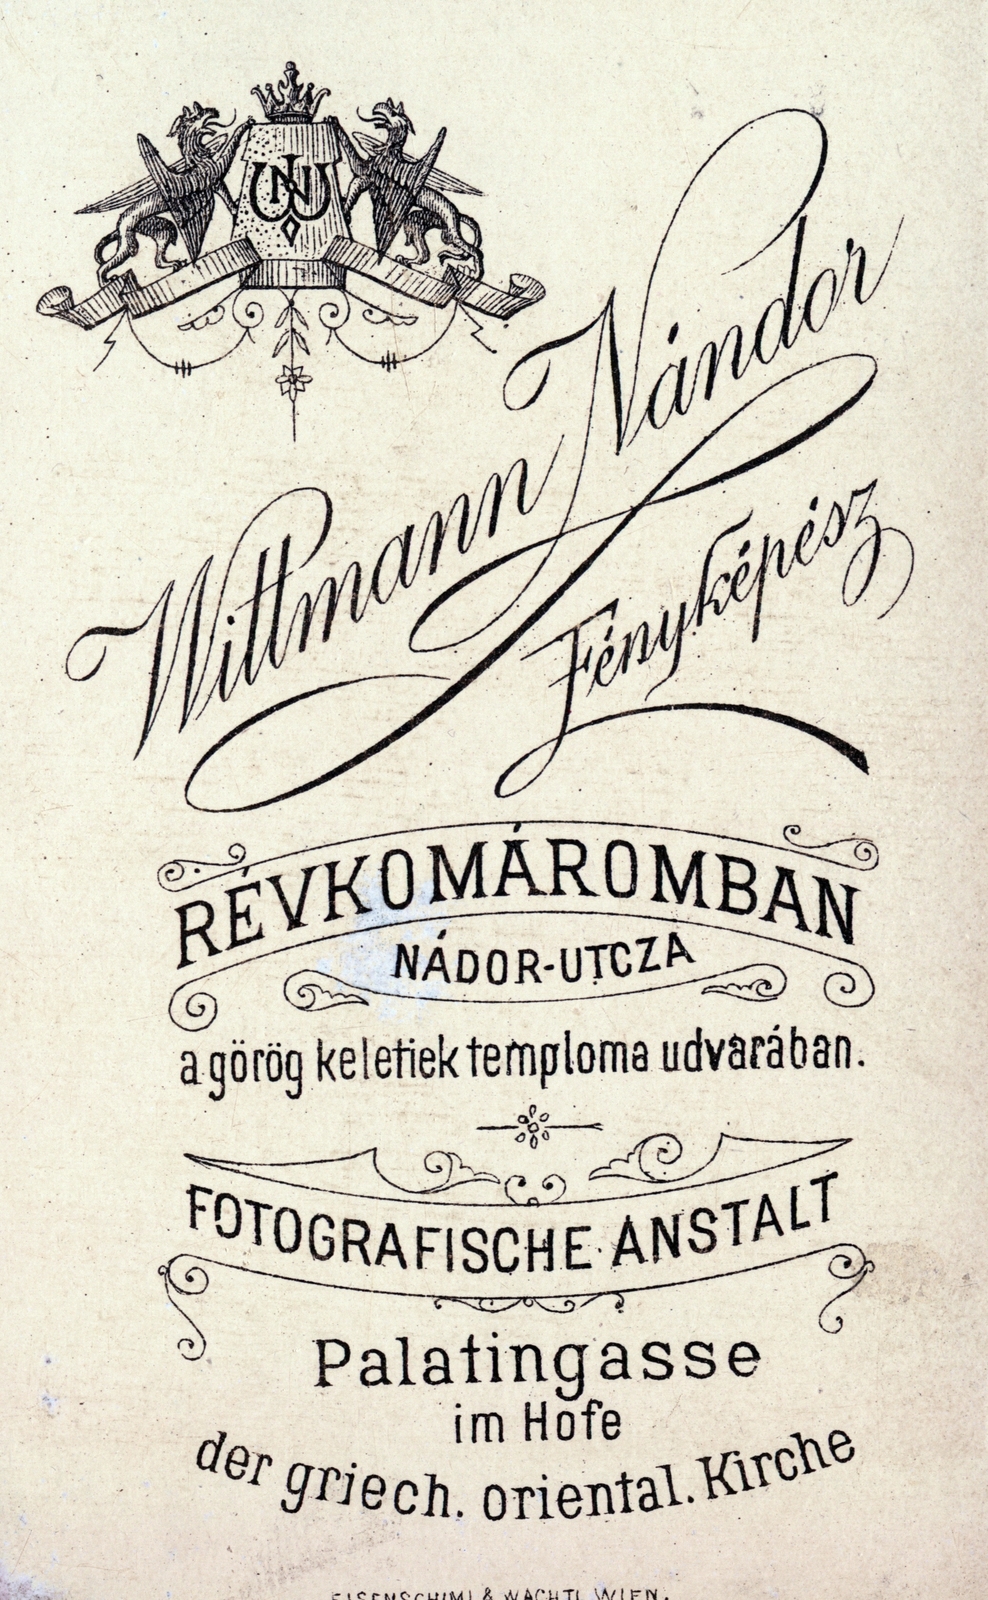 Wittmann Nándor
Fényképész
RÉVKOMÁROMBAN
NÁDOR-UTCZA
a görög keletiek temploma udvarában.
FOTOGRAFISCHE ANSTALT
Palatingasse
im Hofe
der griech. oriental. Kirche
EISENSCHIML & WACHTL WIEN.